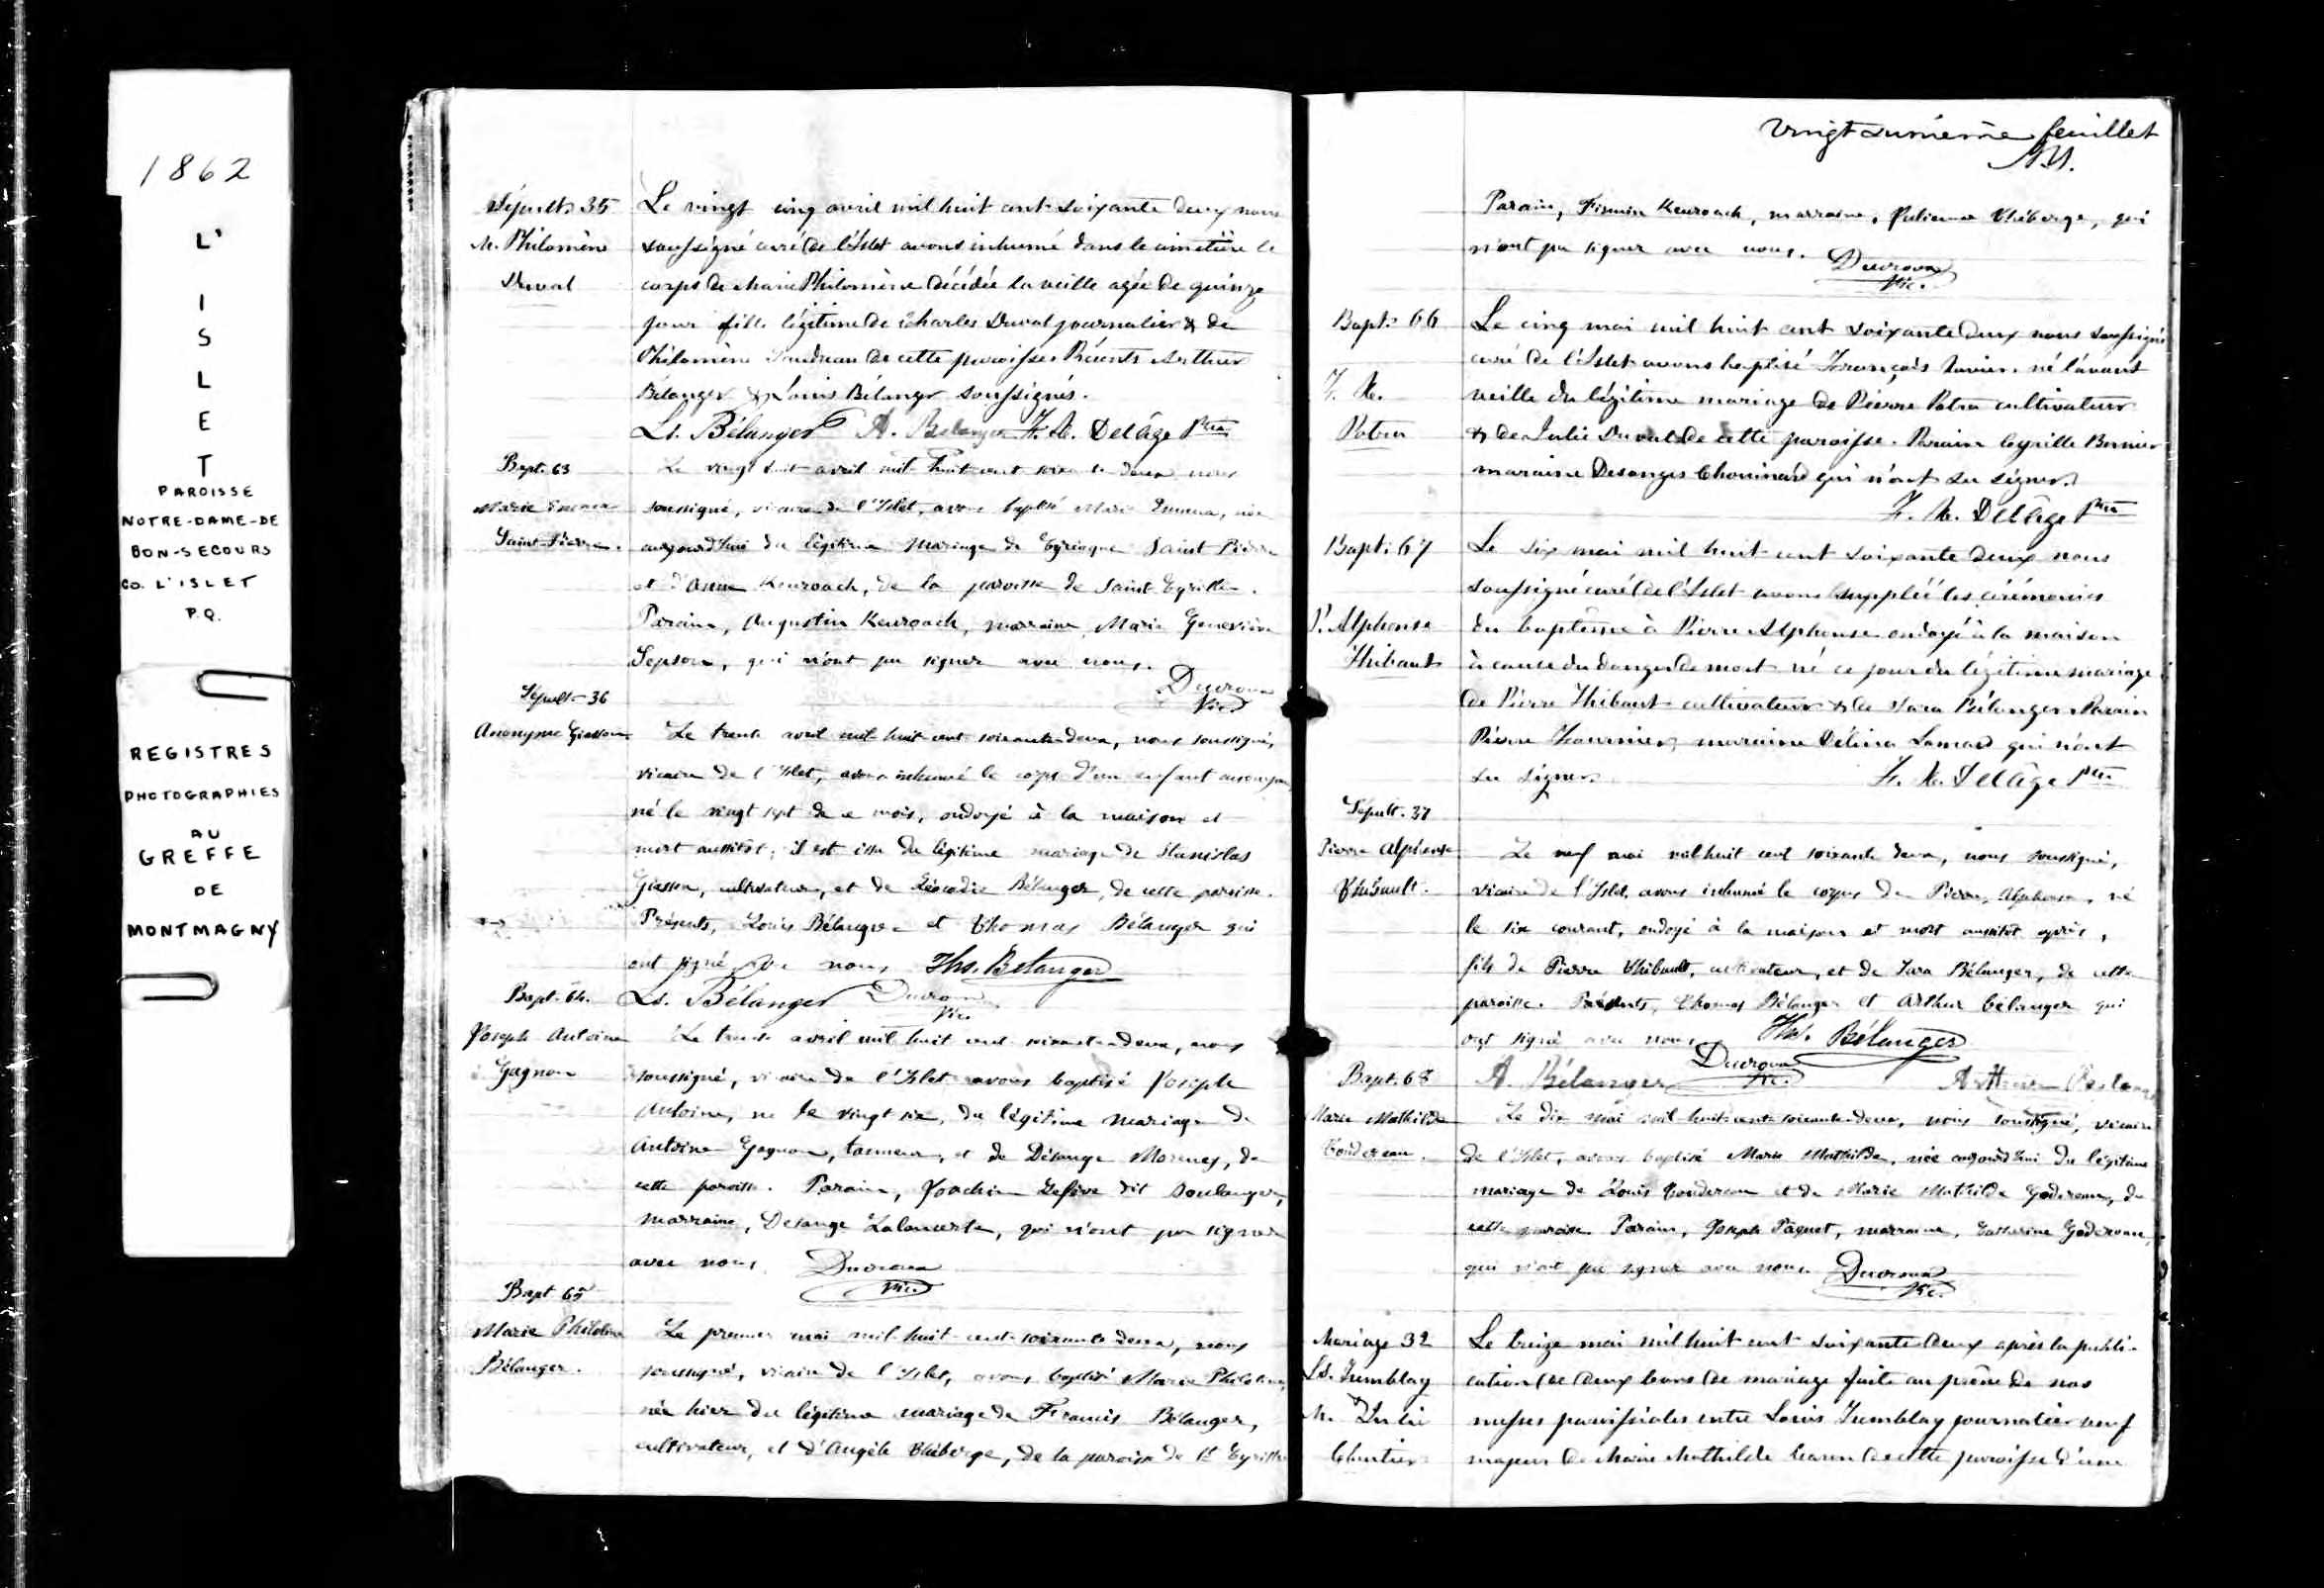 1862
L'
I
S
L
E
T
PAROISSE
NOTRE-DAME-DE
BON-SECOURS
CO. L'ISLET
P.Q.
REGISTRES
PHOTOGRAPHIES
AU
GREFFE
DE
MONTMAGNY
Sépult. 35
M. Philomène
Duval
Le vingt cinq avril mil huit cent soixante deux nous
soussigné curé de l'Islet avons inhumé dans le cimetière le
corps de Marie Philomène décédée la veille agée de quinze
jours fille légitime de Charles Duval journalier & de
Philomène de cette paroisse Présents Arthur
Bélanger & Louis Bélanger soussignés.
Ls. Bélanger A. Belanger F. X. Delâge Ptre
Bapt. 63
Marie Emma
Saint Pierre.
Le vingt huit avril mil huit cent soixante deux nous
soussigné, vicaire de l'Islet, avons baptisé Marie Emma, née
aujourd'hui du légitime mariage de Cyriaque Saint Pierre
et d'Anne Keuroack, de la paroisse de Saint Cyrille.
Parain, Augustin Keuroack, marraine, Marie Geneviève
qui n'ont pu signer avec nous.
Ducroux
Vic.
Sépult. 36
Anonyme Giasson
Le trente avril mil huit cent soixante deux, nous soussigné,
vicaire de l'Islet, avons inhumé le corps d'un enfant anonyme
né le vingt sept de ce mois, ondoyé à la maison et
mort aussitôt; il est issu du légitime mariage de Stanislas
Giasson, cultivateur, et de Léocadie Bélanger, de cette paroisse.
Présents, Louis Bélanger et Thomas Bélanger qui
ont signé avec nous Ths. Belanger
Ls. Bélanger Ducroux
Vic.
Bapt. 64.
Joseph Antoine
Gagnon
Le trente avril mil huit cent soixante deux, nous
soussigné, vicaire de l'Islet avons baptisé Joseph
Antoine, né le vingt six, du légitime mariage de
Antoine Gagnon, tanneur, et de Désange Morency, de
cette paroisse. Parain, Joachim Lefève dit Boulanger,
marraine, Desange Lalancette, qui n'ont pu signer
avec nous. Ducroux
Vic.
Bapt. 65
Marie
Bélanger.
Le premier mai mil huit cent soixante deux, nous
soussigné, vicaire de l'Islet, avons baptisé Marie
née hier du légitime mariage de Francis Bélanger,
cultivateur, et d'Angèle Théberge, de la paroisse de St Cyrille
feuillet
Parain, Firmin Keuroack, marraine, Julienne Théberge, qui
n'ont pu signer avec nous.
Ducroux
Vic.
Bapt. 66
F. X.
Potvin
Le cinq mai mil huit cent soixante deux nous soussigné
curé de l'Islet avons baptisé François Xavier né l'avant
veille du légitime mariage de Pierre Potvin cultivateur
& de Julie Duval de cette paroisse. Parain Cyrille Bernier
maraine Desanges Chouinard qui n'ont su signer.
F. X. Delâge Ptre
Bapt. 67
P. Alphonse
Thibaut
Le six mai mil huit cent soixante deux nous
soussigné curé de l'Islet avons suppléé les cérémonies
du baptême à Pierre Alphonse ondoyé à la maison
à cause du danger de mort né ce jour du légitime mariage
de Pierre Thibaut cultivateur & de Sara Bélanger. Parain
Pierre Fournier, maraine Délina Lamard qui n'ont
su signer. F. X. Delâge Ptre
Sépult. 37
Pierre Alphonse
Thibault.
Le neuf mai mil huit cent soixante deux, nous soussigné,
vicaire de l'Islet, avons inhumé le corps de Pierre, Alphonse, né
le six courant, ondoyé à la maison et mort aussitôt après,
fils de Pierre Thibault, cultivateur, et de Sara Bélanger, de cette
paroisse. Présents, Thomas Bélanger et Arthur Bélanger qui
ont signé avec nous Ths. Bélanger
Ducroux
Vic.
A. Bélanger Arthur
Bapt. 68
Marie Mathilde
Couderean.
Le dix mai mil huit cent soixante deux, nous soussigné, vicaire
de l'Islet, avons baptisé Marie Mathilde, née aujourd'hui du légitime
mariage de Louis et de Marie Mathilde Godereau, de
cette paroisse. Parain, Joseph Paquet, marraine, Catherine Godereau,
qui n'ont pu signer avec nous. Ducroux
Vic.
Mariage 32
Ls. Tremblay
M. Julie
Cloutier
Le treize mai mil huit cent soixante deux après la publi-
cation de deux bans de mariage faite au prône de nos
messes paroissiales entre Louis Tremblay journalier veuf
majeur de Marie Mathilde Caron de cette paroisse d'une